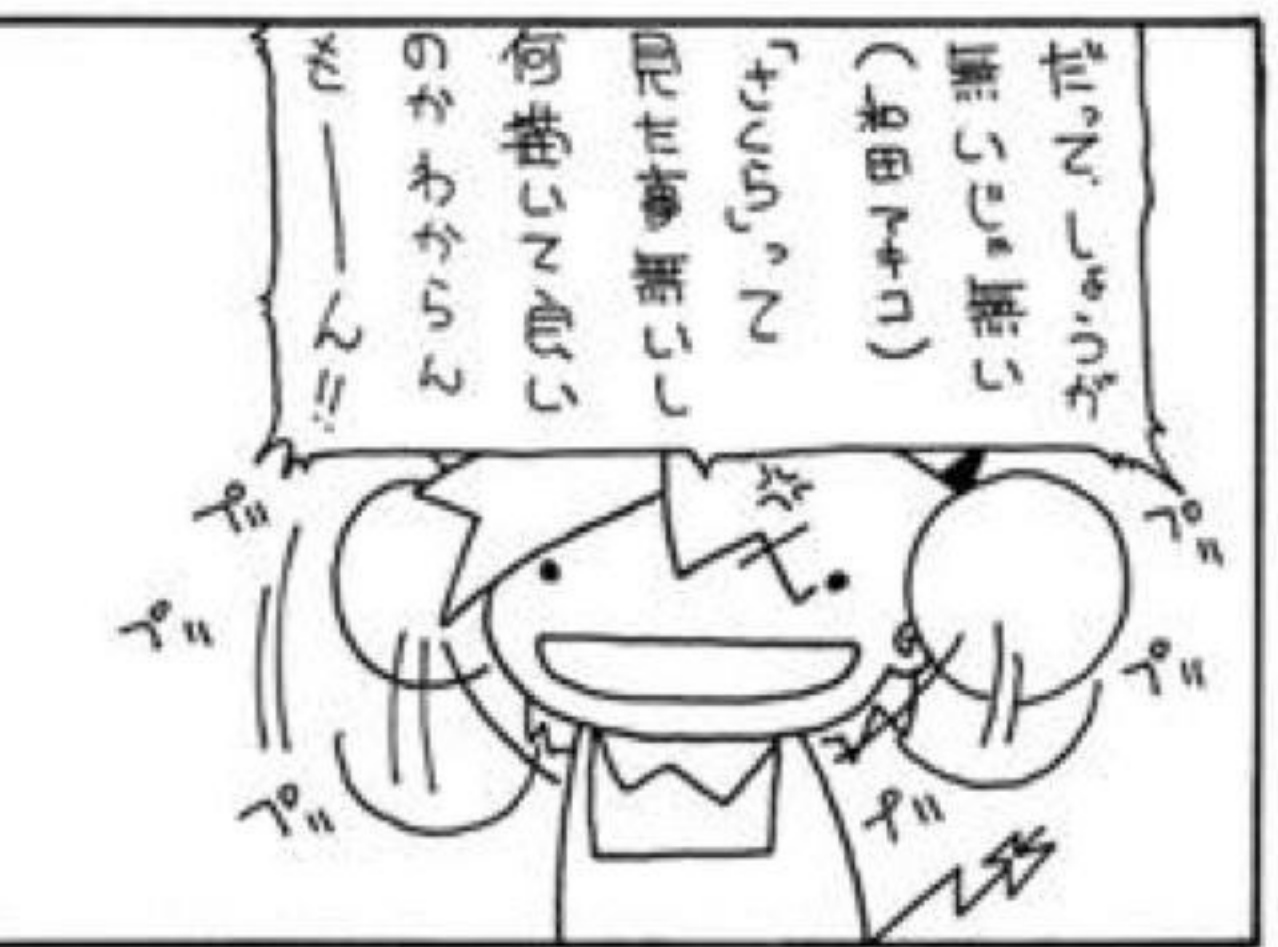 だって、しょうが
無いじゃ無い
(和田アキコ)
「さくら」って
見た事無いし
何描いて良い
のかわからん
もーん!!
プン
プン
プン
プン
プン
プン